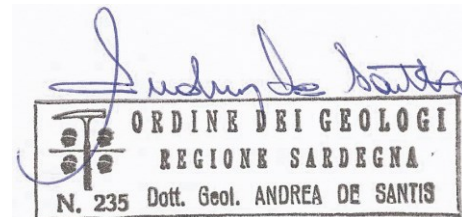 Andrea De Santis
ORDINE DEI GEOLOGI
REGIONE SARDEGNA
N. 235 Dott. Geol. ANDREA DE SANTIS